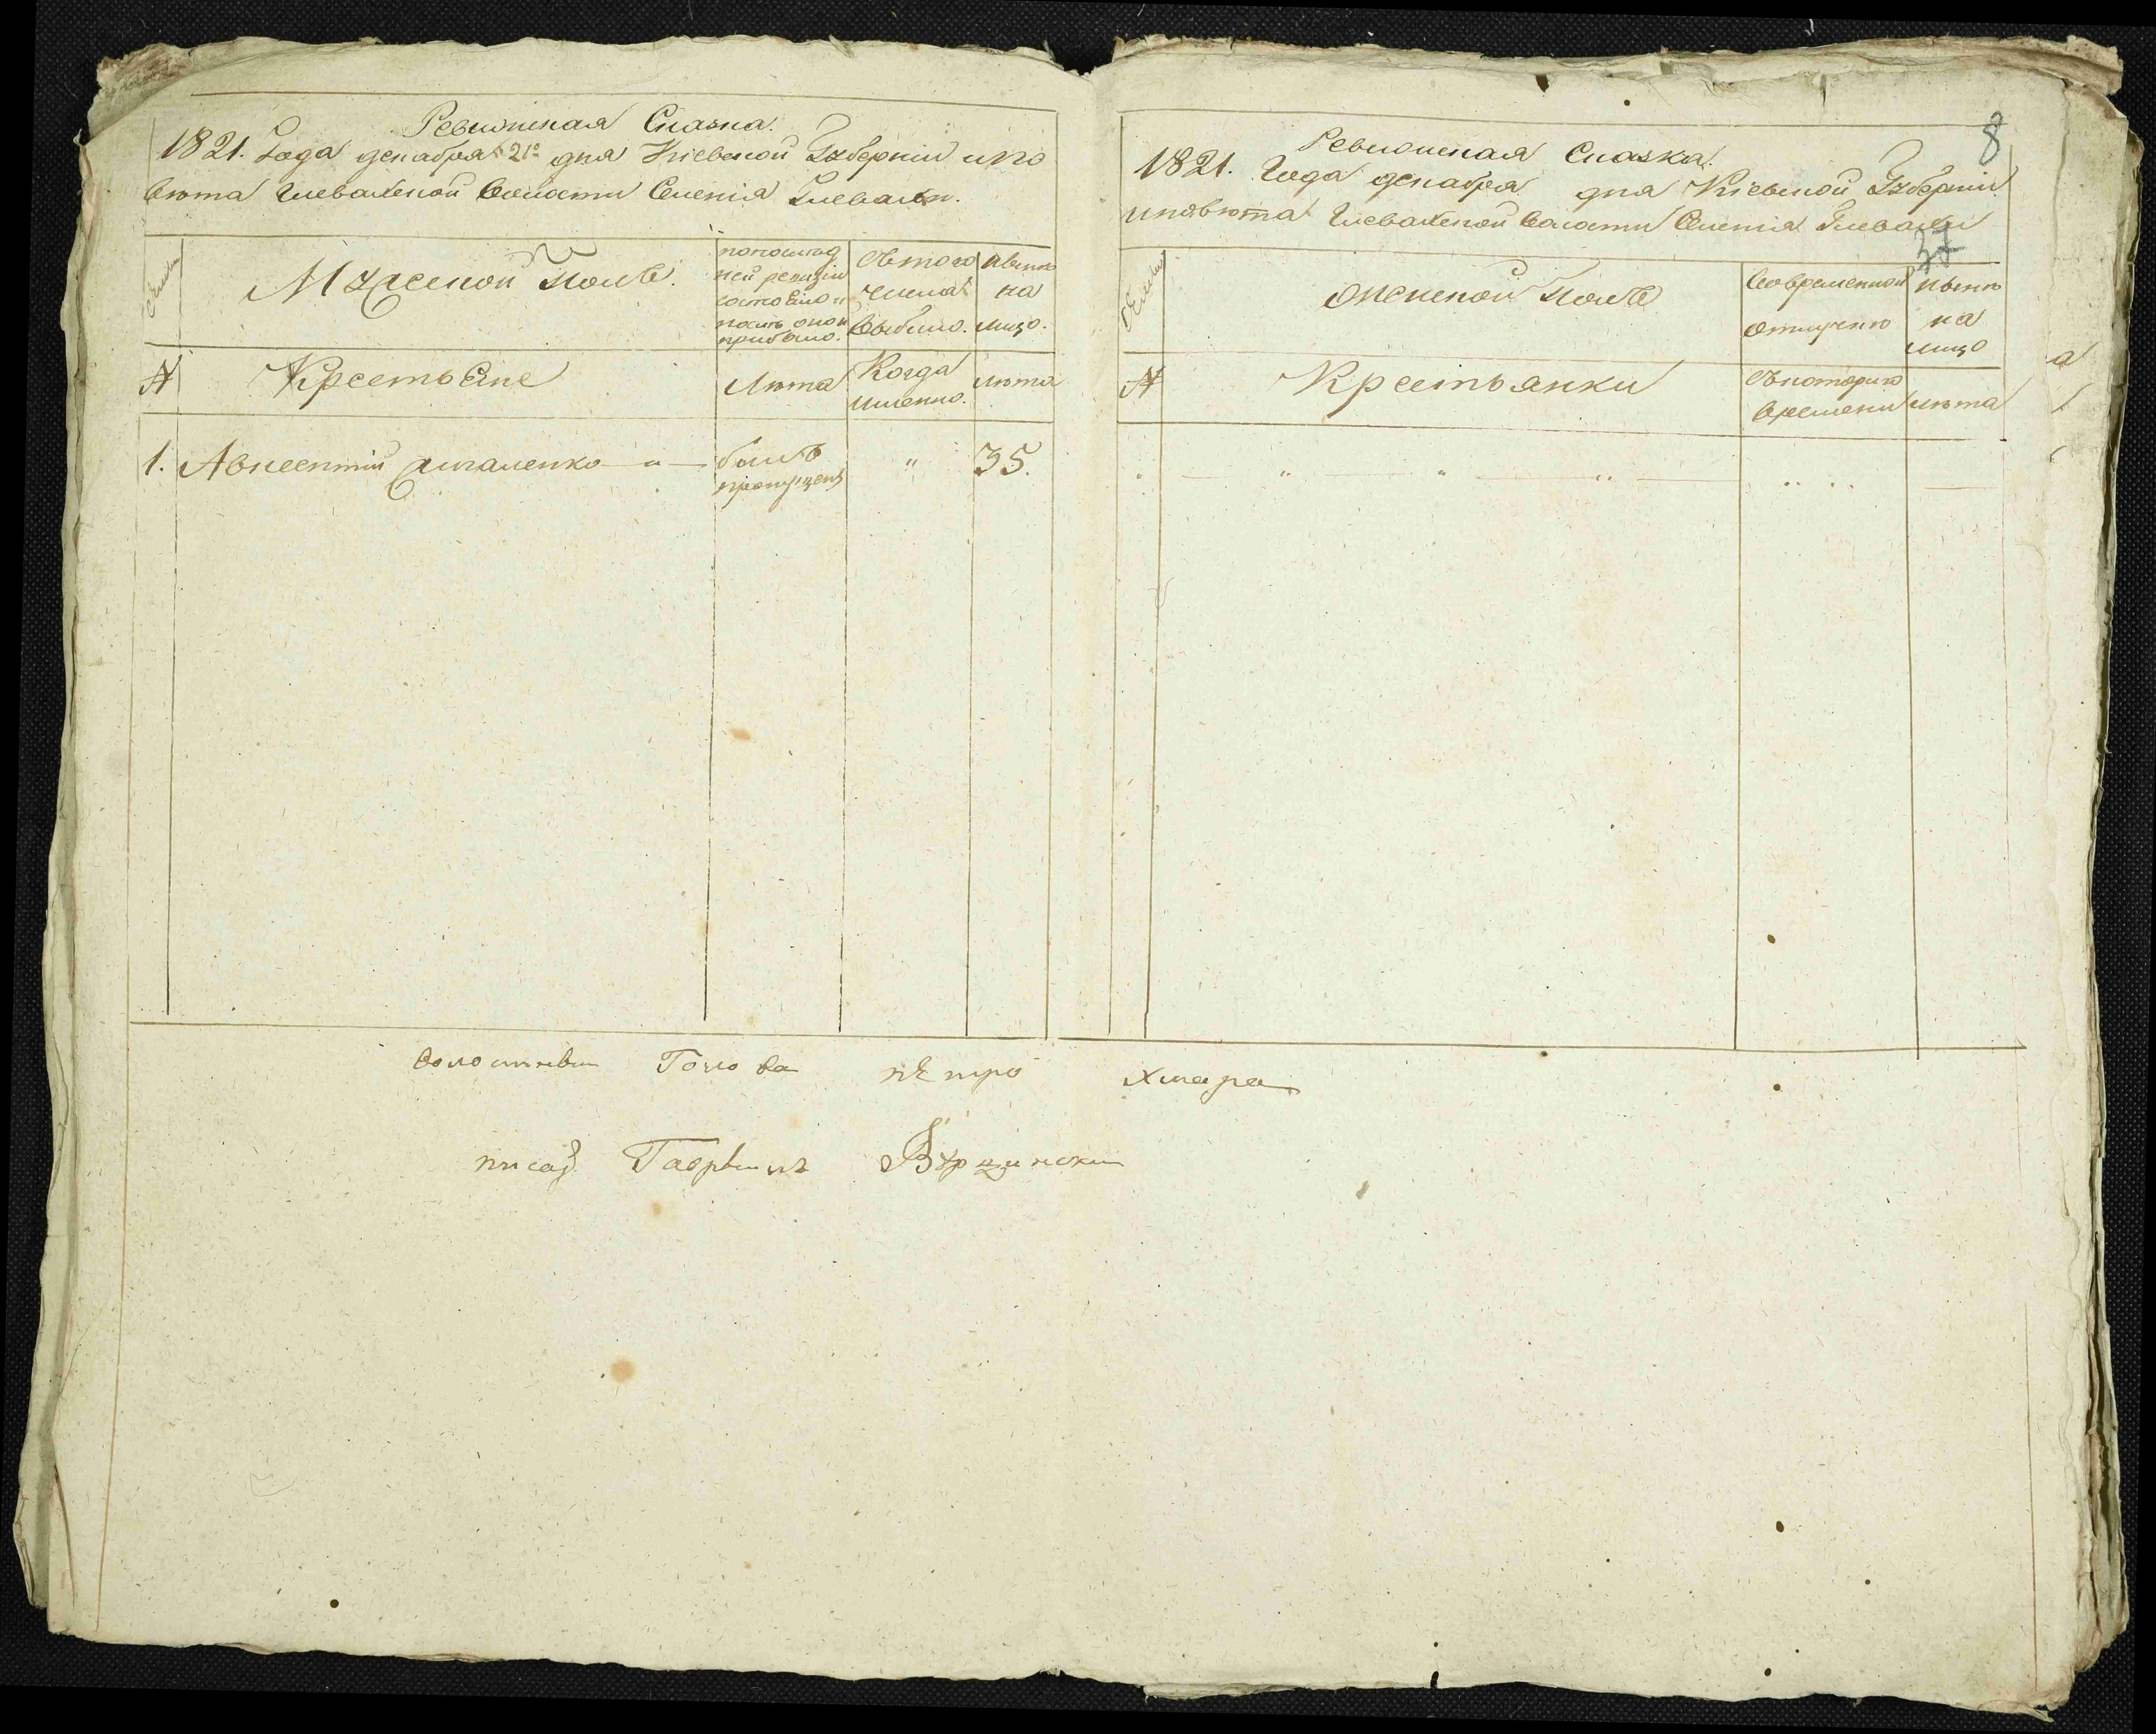 Ревизская Сказка.
1821. Года декабря 21го дня Киевской Губернии ипо
вета Глевахской Волости Селения Глевахи.
Семьи
Мужеской полъ.
попослед
ней ревизии
состояло и
послъ оной
прибыло.
Изтого
числа
выбыло.
Ныне
на
лицо.
№
Крестьяне
Лета
Когда
именно.
лета
1. Авксентий — „ —
былъ
пропущенъ
„
35.
8
Ревизская Сказка.
1821. Года декабря дня Киевской Губернии
иповета Глевахской Волости Селения Глевахи
37
Семьи
Женской полъ
Вовременной
отлучке
Ныне
на
лицо
№
Крестьянки
Скоторого
времени
лета
волостный Голова петро Хмара
писар Гаврыилъ